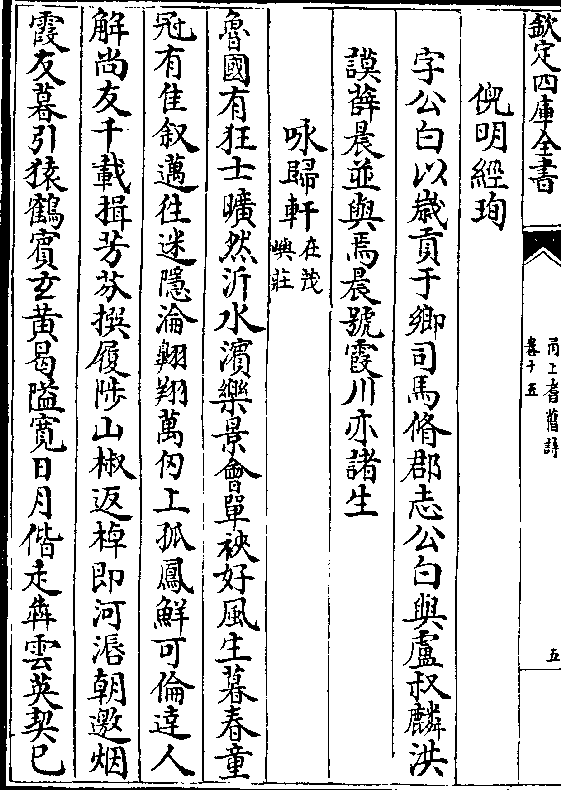 欽定四庫全書
甬上耆舊詩
卷十五
五
倪明經珣
字公白以歲貢于鄉司馬脩郡志公白與盧叔麟洪
謨薛晨並與焉晨號霞川亦諸生
咏歸軒在茂
嶼莊
魯國有狂士曠然沂水濱樂景會單袂好風生暮春童
冠有佳叙邁往迷隱淪翺翔萬仞上孤鳳鮮可倫達人
解尚友千載揖芳芬撰履陟山椒返棹即河漘朝邀烟
霞友暮引猿鶴賓玄黄曷隘寛日月偕走犇雲英契已